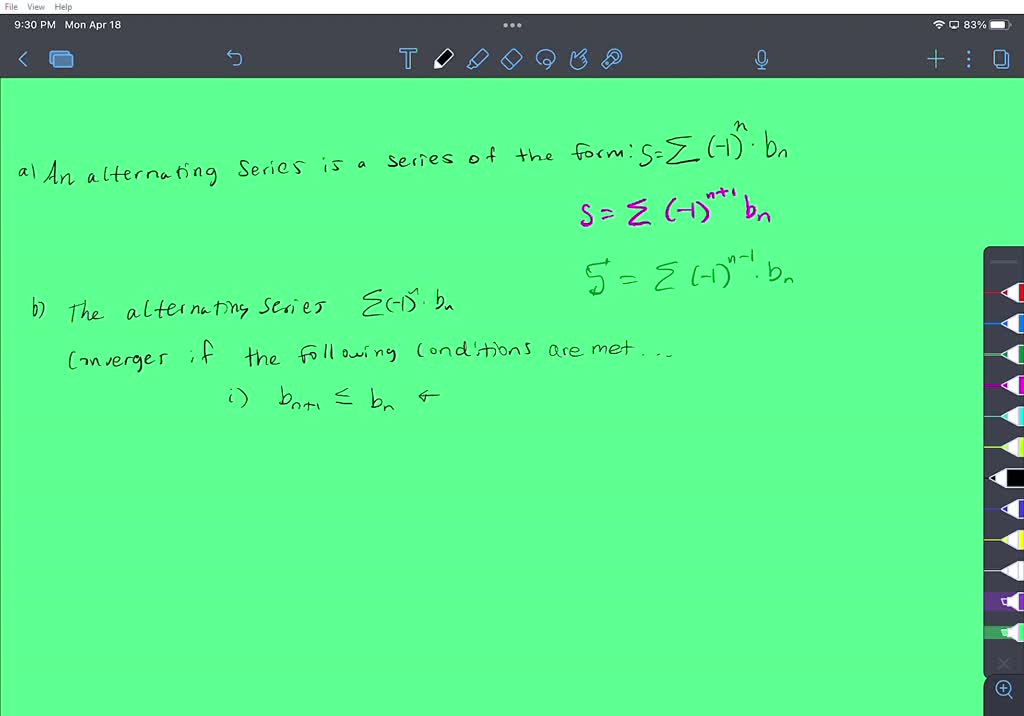 File View Help
9:30 PM Mon Apr 18
83%
a) An alternating series is a series of the form: S=∑(-1)^n · bn
S = ∑ (-1)^n+1 bn
S = ∑ (-1)^n-1 · bn
b) The alternating series ∑(-1)^n · bn
Converges if the following conditions are met...
i) bn+1 ≤ bn ←